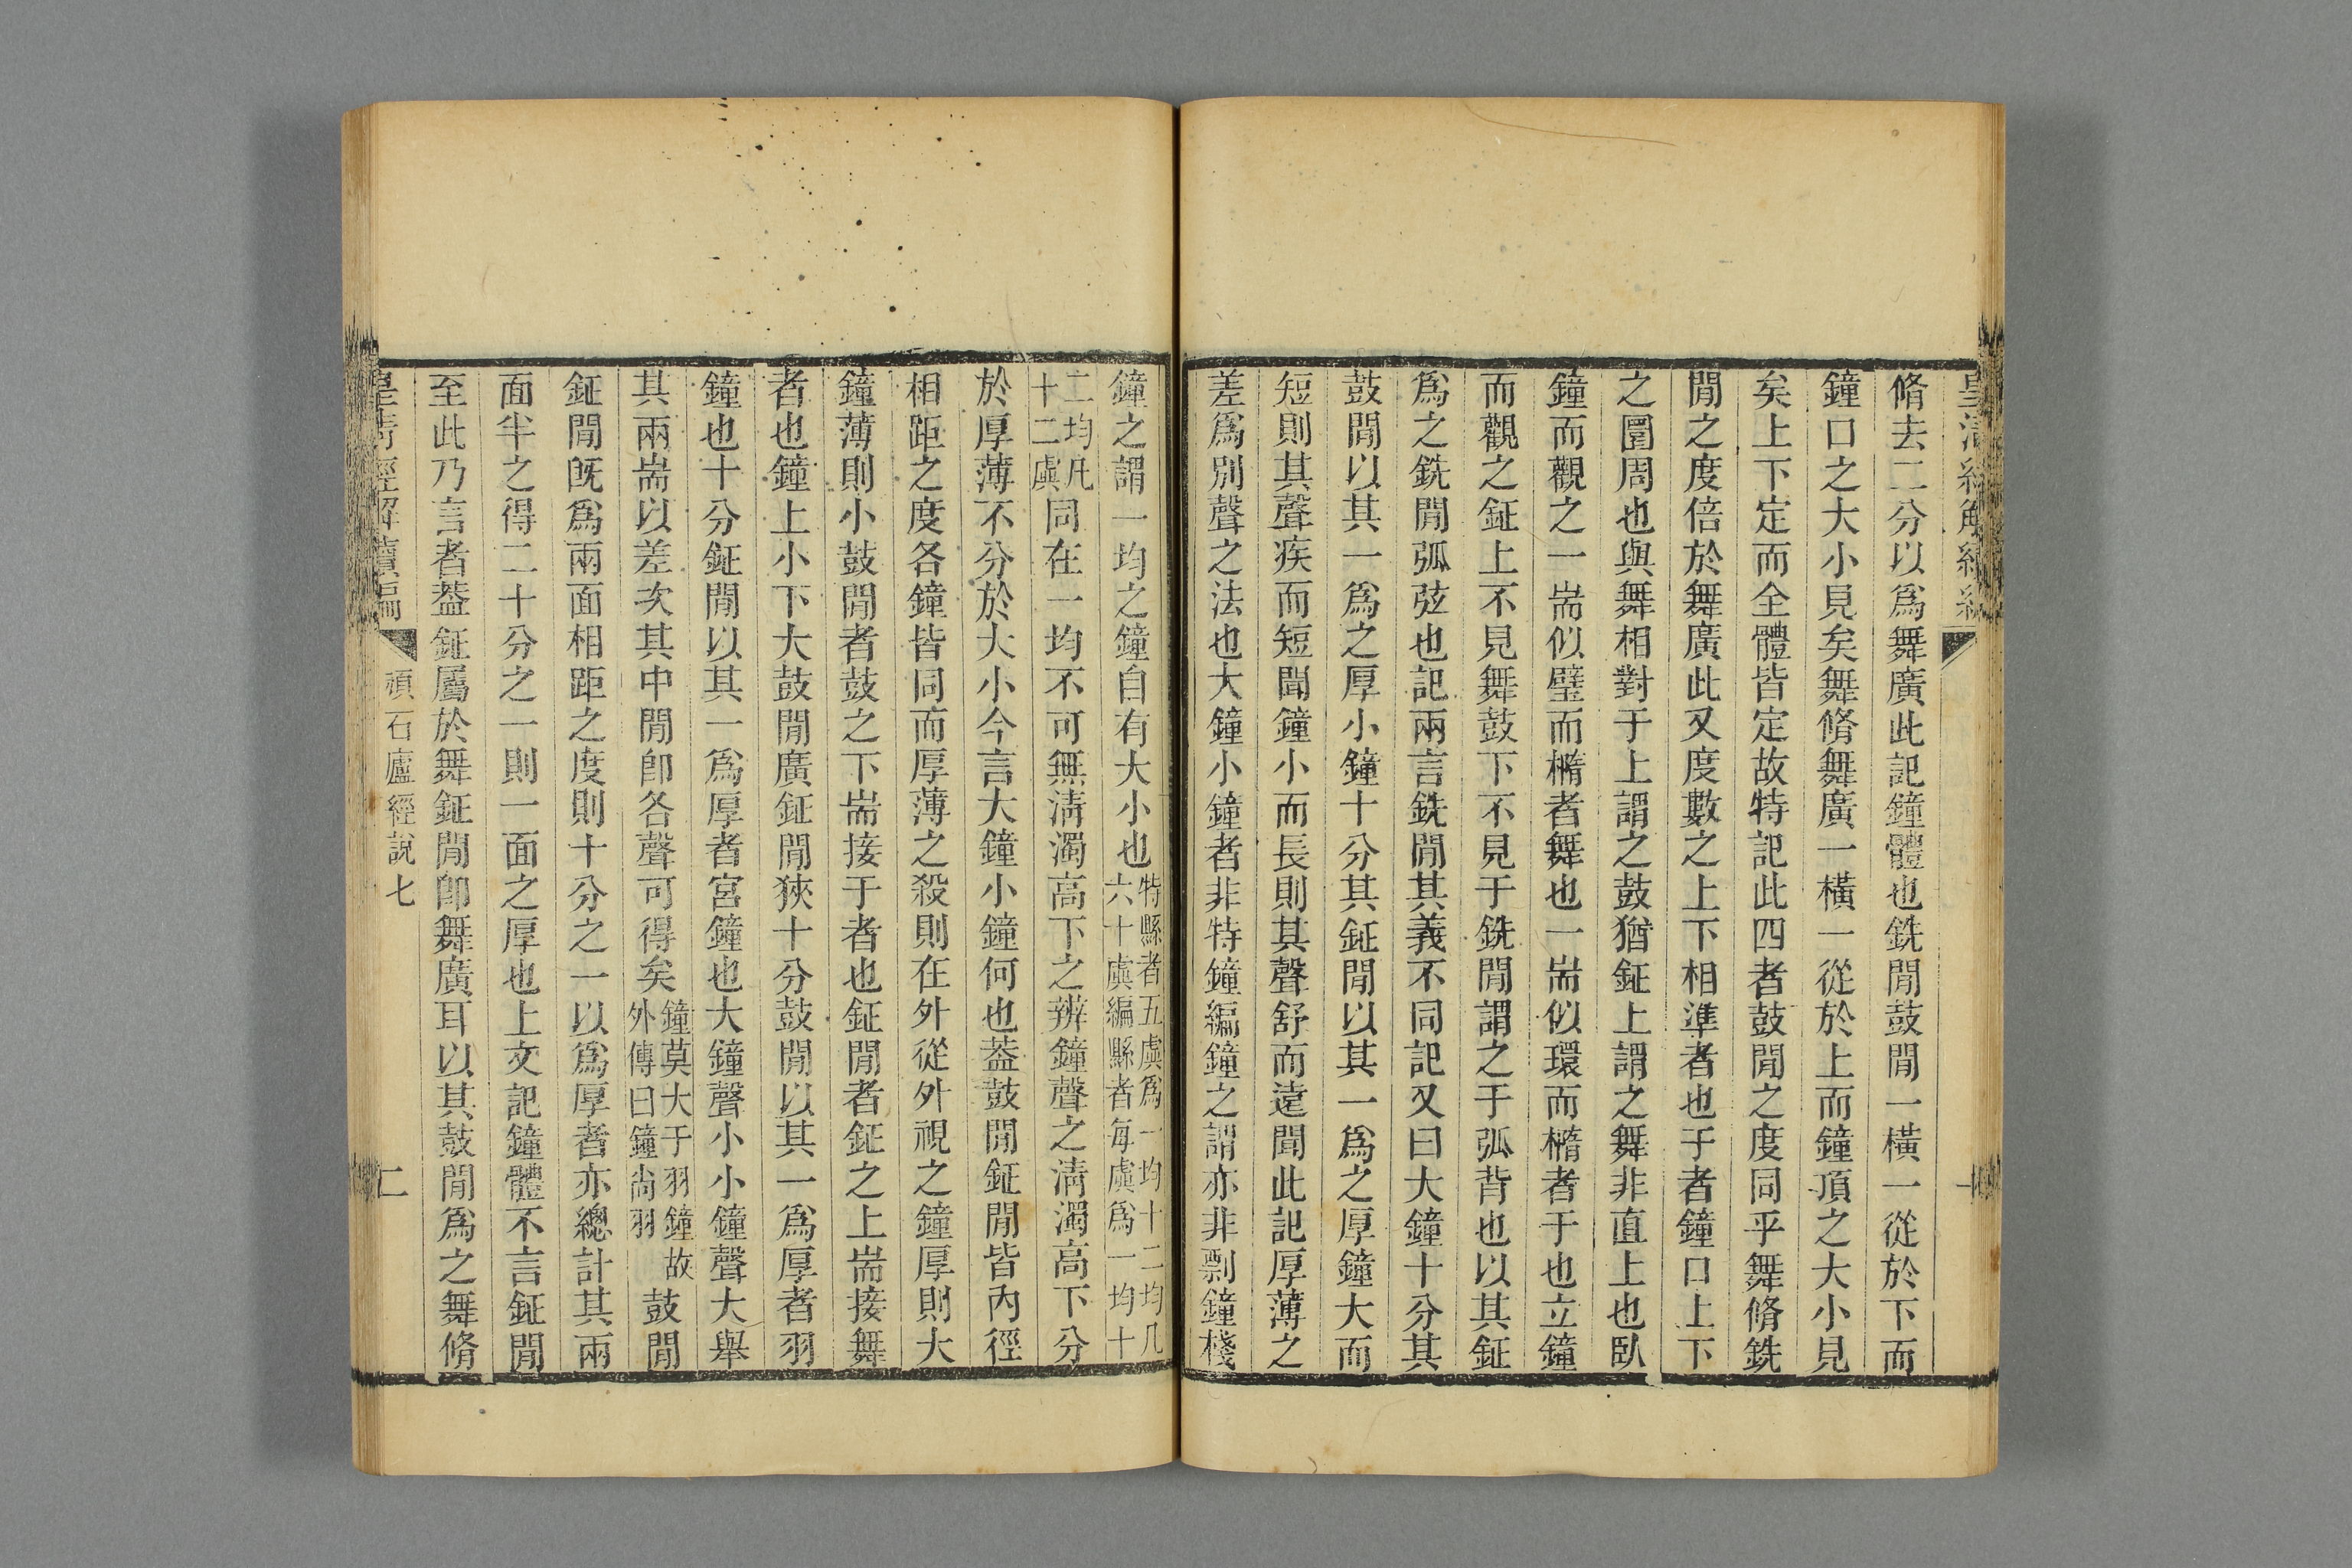 脩去二分以爲舞廣此記鐘體也銑閒鼓閒一橫一從於下而
鐘口之大小見矣舞脩舞廣一橫一從於上而鐘頂之大小見
矣上下定而全體皆定故特記此四者鼓閒之度同乎舞脩銑
閒之度倍於舞廣此又度數之上下相準者也于者鐘口上下
之圜周也與舞相對于上謂之鼓猶鉦上謂之舞非直上也臥
鐘而觀之一耑似璧而橢者舞也一耑似環而橢者于也立鐘
而觀之鉦上不見舞鼓下不見于銑閒謂之于弧背也以其鉦
爲之銑閒弧弦也記兩言銑閒其義不同記又曰大鐘十分其
鼓閒以其一爲之厚小鐘十分其鉦閒以其一爲之厚鐘大而
短則其聲疾而短聞鐘小而長則其聲舒而遠聞此記厚薄之
差爲別聲之法也大鐘小鐘者非特鐘編鐘之謂亦非剽鐘棧
鐘之謂一均之鐘自有大小也特縣者五虡爲一均十二均凡
六十虡編縣者每虡爲一均十
二均凡
十二虡同在一均不可無淸濁高下之辨鐘聲之淸濁高下分
於厚薄不分於大小今言大鐘小鐘何也葢鼓閒鉦閒皆內徑
相距之度各鐘皆同而厚薄之殺則在外從外視之鐘厚則大
鐘薄則小鼓閒者鼓之下耑接于者也鉦閒者鉦之上耑接舞
者也鐘上小下大鼓閒廣鉦閒狹十分鼓閒以其一爲厚者羽
鐘也十分鉦閒以其一爲厚者宮鐘也大鐘聲小小鐘聲大舉
其兩耑以差次其中閒卽各聲可得矣鐘莫大于羽鐘故
外傳曰鐘尙羽鼓閒
鉦閒旣爲兩面相距之度則十分之一以爲厚者亦總計其兩
面半之得二十分之一則一面之厚也上文記鐘體不言鉦閒
至此乃言者葢鉦屬於舞鉦閒卽舞廣耳以其鼓閒爲之舞脩
皇淸經解續編
頑石廬經說七
二